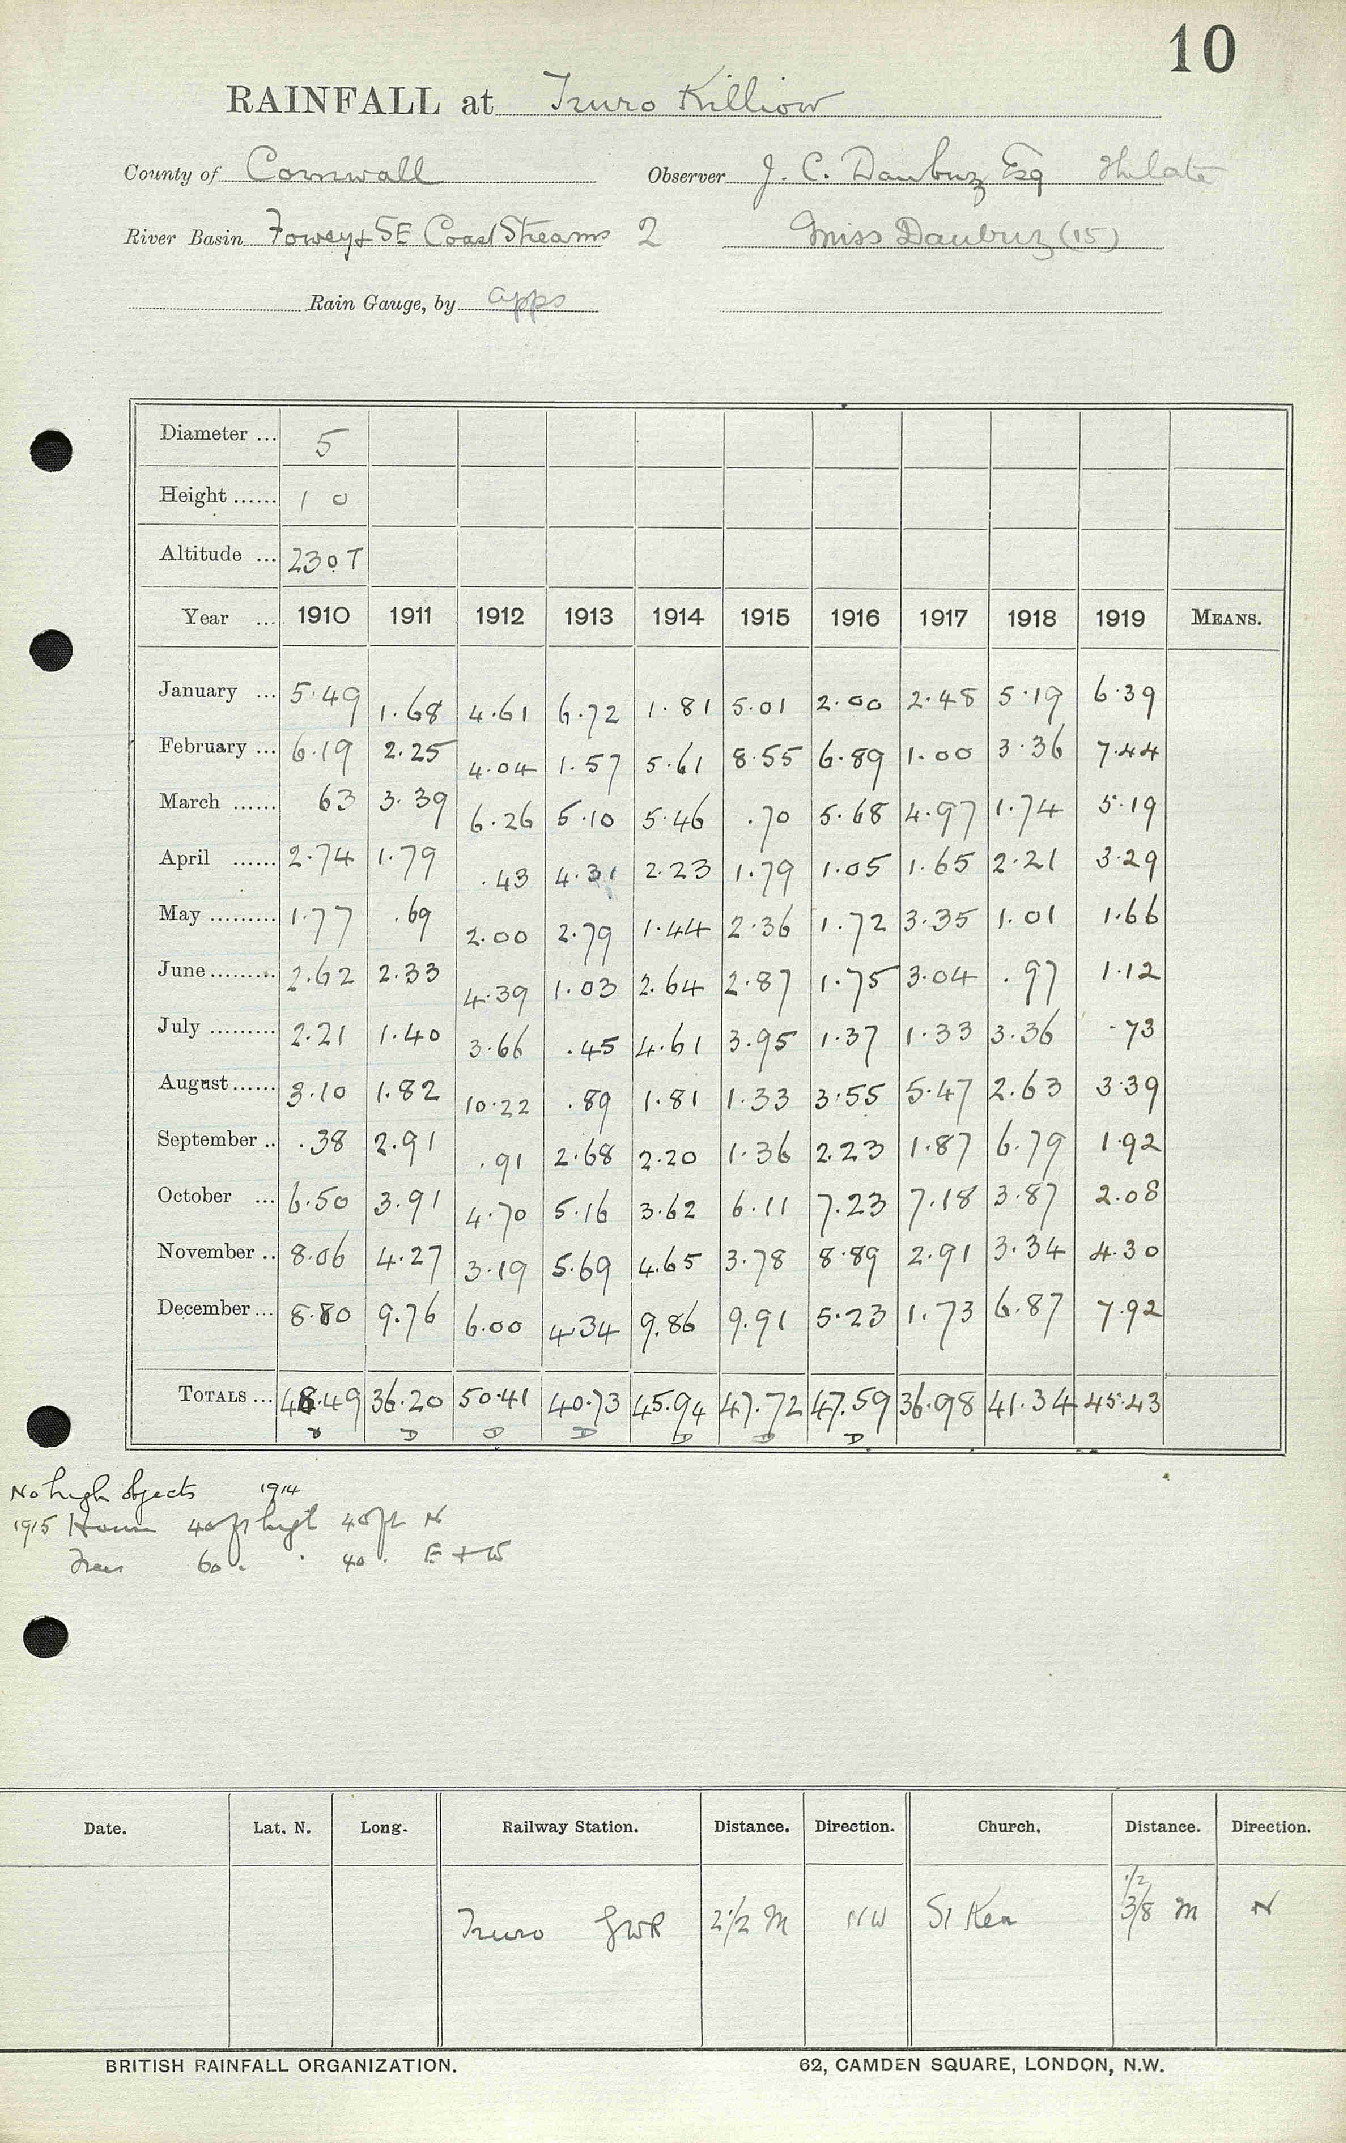 10
RAINFALL at Truro Killiow
County of Cornwall Observer J. C. Daubuz Esq The late
River Basin Fowey + SE Coast Streams 2 Miss Daubuz (15)
Rain Gauge, by Apps
Diameter ... 5
Height ...... 1 0
Altitude ... 230 T
Year ... 1910 1911 1912 1913 1914 1915 1916 1917 1918 1919 MEANS.
January ... 5.49 1.68 4.61 6.72 1.81 5.01 2.00 2.48 5.19 6.39
February ... 6.19 2.25 4.04 1.57 5.61 8.55 6.89 1.00 3.36 7.44
March ...... 63 3.39 6.26 5.10 5.46 .70 5.68 4.97 1.74 5.19
April ...... 2.74 1.79 .43 4.31 2.23 1.79 1.05 1.65 2.21 3.29
May ......... 1.77 .69 2.00 2.79 1.44 2.36 1.72 3.35 1.01 1.66
June ......... 2.62 2.33 4.39 1.03 2.64 2.87 1.75 3.04 .97 1.12
July ......... 2.21 1.40 3.66 .45 4.61 3.95 1.37 1.33 3.36 .73
August ...... 3.10 1.82 10.22 .89 1.81 1.33 3.55 5.47 2.63 3.39
September .. .38 2.91 .91 2.68 2.20 1.36 2.23 1.87 6.79 1.92
October ... 6.50 3.91 4.70 5.16 3.62 6.11 7.23 7.18 3.87 2.08
November .. 8.06 4.27 3.19 5.69 4.65 3.78 8.89 2.91 3.34 4.30
December ... 8.80 9.76 6.00 4.34 9.86 9.91 5.23 1.73 6.87 7.92
TOTALS ... 48.49 36.20 50.41 40.73 45.94 47.72 47.59 36.98 41.34 45.43
D D D D D D D
No high objects 1914
1915 House 40 ft high 40 ft N
Trees 60 . . 40 . E + W
Date. Lat. N. Long. Railway Station. Distance. Direction. Church. Distance. Direction.
1/2
Truro GWR 2 1/2 M NW St Kea 3/8 M N
BRITISH RAINFALL ORGANIZATION. 62, CAMDEN SQUARE, LONDON, N.W.